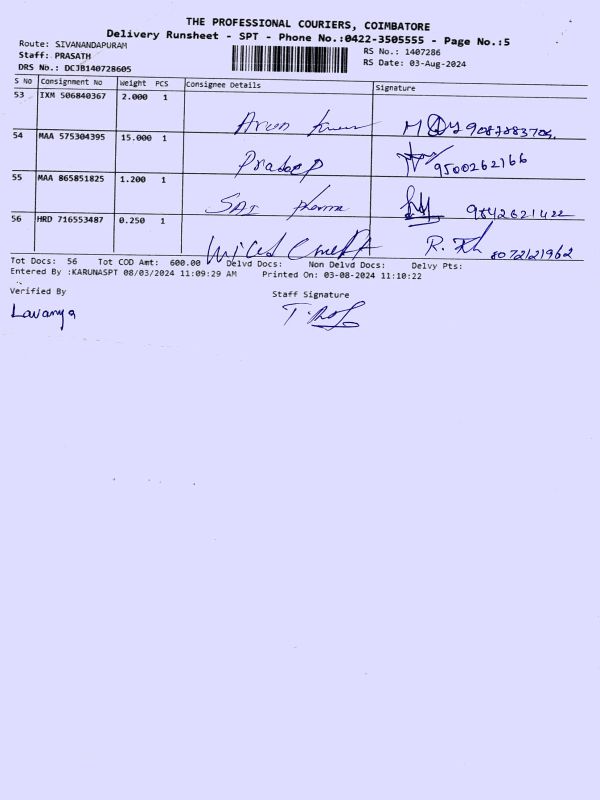 THE PROFESSIONAL COURIERS, COIMBATORE
Delivery Runsheet - SPT - Phone No.:0422-3505555 - Page No.:5
Route: SIVANANDAPURAM RS No.: 1407286
Staff: PRASATH RS Date: 03-Aug-2024
DRS No.: DCJB140728605
S No Consignment No Weight PCS Consignee Details Signature
53 IXM 506840367 2.000 1
Arun Kumar
54 MAA 575304395 15.000 1
Pradeep 9500262166
55 MAA 865851825 1.200 1
SAI Pharma 9842621422
56 HRD 716553487 0.250 1
8072121962
Tot Docs: 56 Tot COD Amt: 600.00 Delvd Docs: Non Delvd Docs: Delvy Pts:
Entered By :KARUNASPT 08/03/2024 11:09:29 AM Printed On: 03-08-2024 11:10:22
Verified By Staff Signature
Lavanya